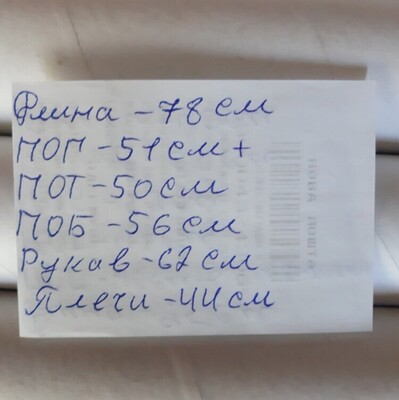 Длина - 78 см
ПОГ - 51 см +
ПОТ - 50 см
ПОБ - 56 см
Рукав - 62 см
Плечи - 44 см